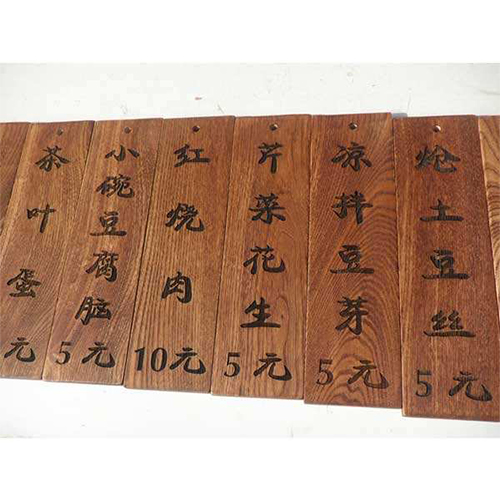 茶叶蛋
元
小碗豆腐脑
5元
红烧肉
10元
芹菜花生
5元
凉拌豆芽
5元
炝土豆丝
5元